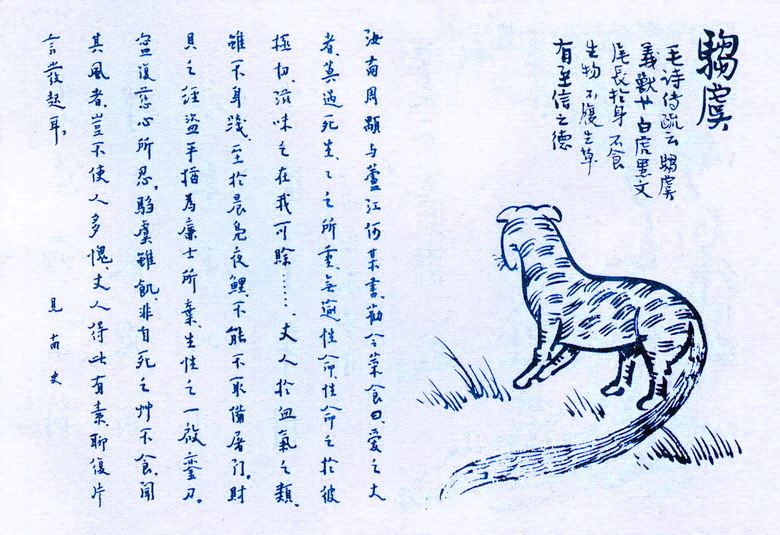 騶虞
毛诗传疏云 騶虞
義獸也 白虎黑文
尾長於身 不食
生物 不履生草
有至信之德
汝南周顒与蘆江何某書勸令菜食曰爱之大
者莫過死生、々之所重、無逾性命、性命之於彼
極切、滋味之在我可賒……、丈人於血氣之類、
雖不身践、至於晨凫夜鯉不能不取備屠门。財
貝之経盗手猶為廉士所棄、生性之一啟鸾刀。
寧復慈心所忍。騶虞雖飢、非自死之艸不食、聞
其風者、豈不使人多愧、丈人得此有素聊復片
言發起耳。
見南史